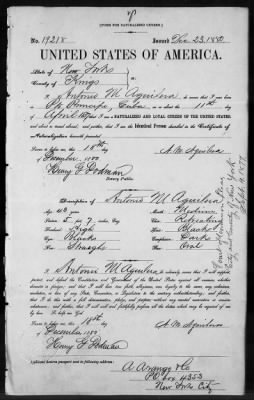 [FORM FOR NATURALIZED CITIZEN.]
No. 19218 Issued Dec 23, 1880
UNITED STATES OF AMERICA.
State of New York
County of Kings
I, Antonio M. Aguilera, do swear that I was born
in Cuba on or about the 11th day of
April that I am a NATURALIZED AND LOYAL CITIZEN OF THE UNITED STATES, and
about to travel abroad, and further, that I am the Identical Person described in the Certificate of
Naturalization herewith presented.
Sworn to before me, this 18th day
of December 1880
A. M. Aguilera
Notary Public.
Description of Antonio M Aguilera
Age: 43 years
Stature: 5 feet 7 inches, Eng.
Forehead: High
Eyes: Blacks
Nose: Straight
Mouth: Medium
Chin: Retreating
Hair: Black
Complexion: Dark
Face: Oval
Court of Common Pleas
City and County of New York
I, Antonio M Aguilera, do solemnly swear that I will support,
protect, and defend the Constitution and Government of the United States against all enemies, whether
domestic or foreign; and that I will bear true faith, allegiance, and loyalty to the same, any ordinance,
resolution, or law of any State, Convention, or Legislature to the contrary notwithstanding; and further,
that I do this with a full determination, pledge, and purpose, without any mental reservation or evasion
whatsoever; and further, that I will well and faithfully perform all the duties which may be required of me
by law: So help me God.
Sworn to before me, this 18th
day of December 1880
A. M. Aguilera
Applicant desires passport sent to following address:
A Arango & Co
PO Box 4353
New York City